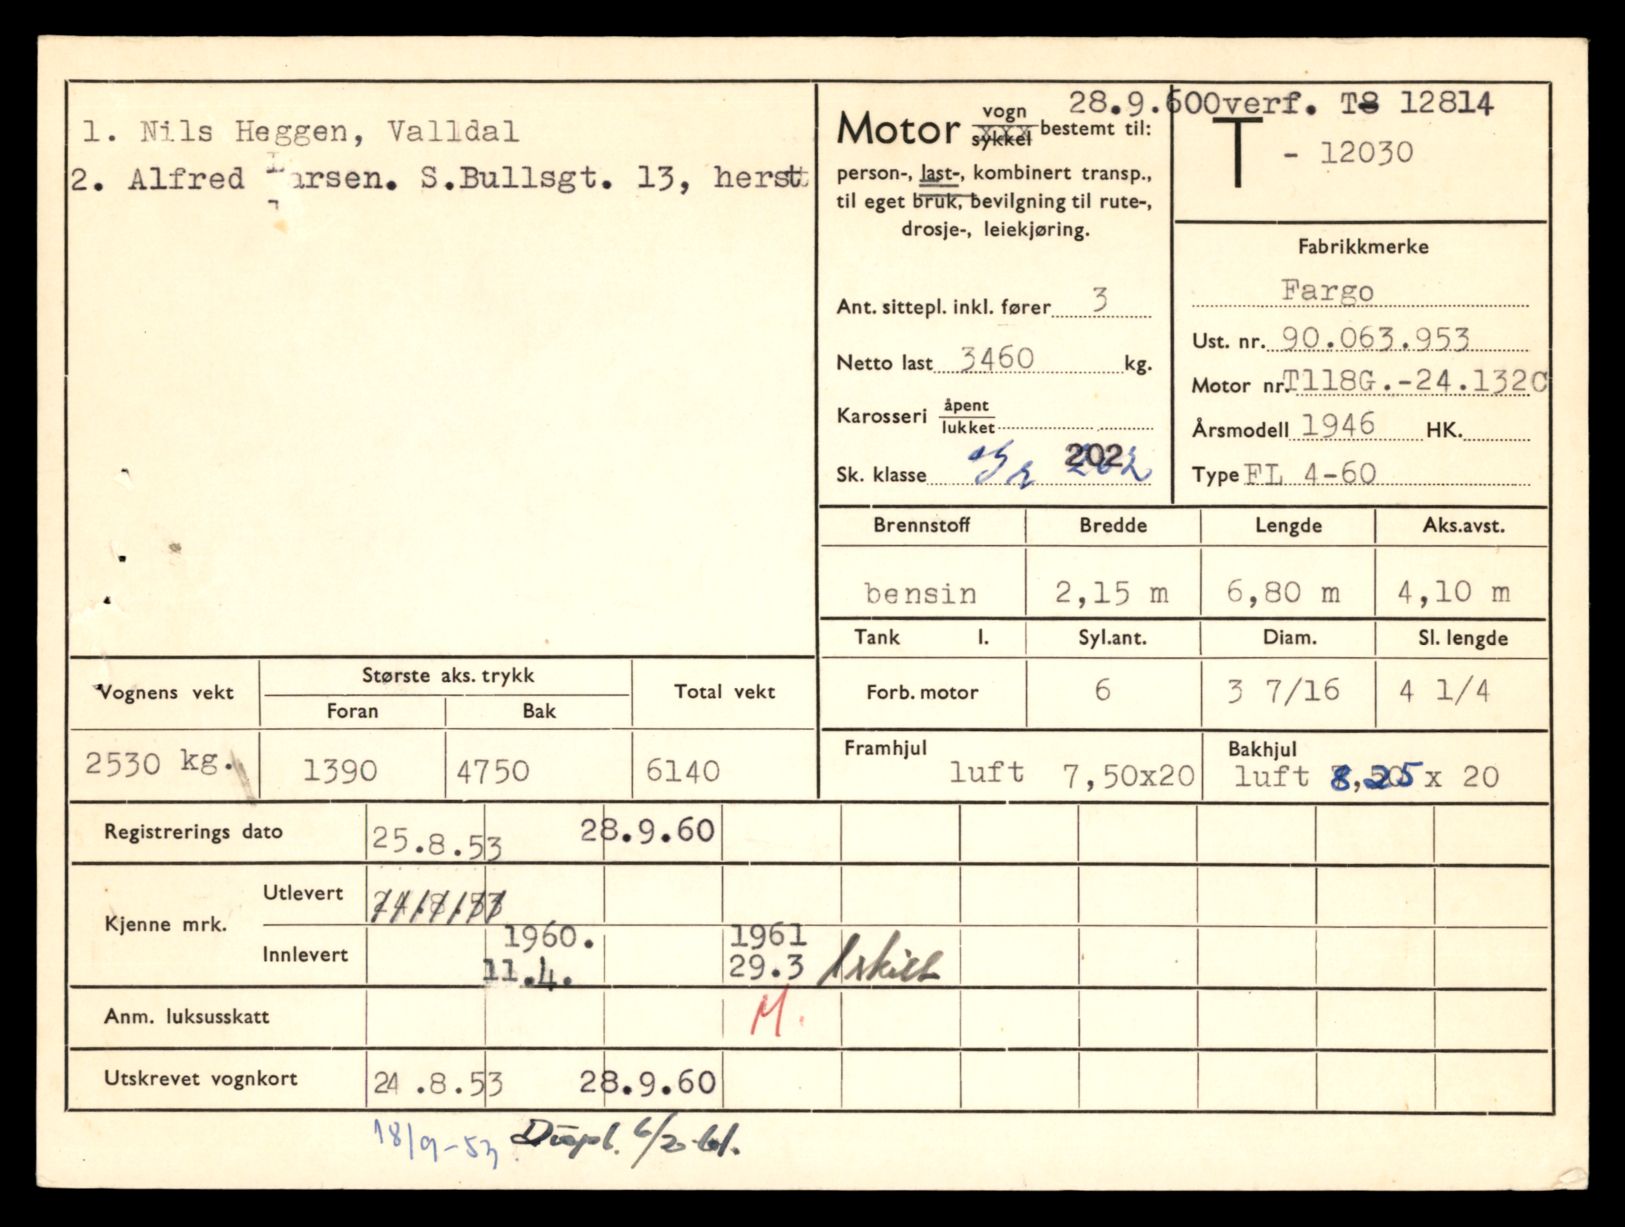 1. Nils Heggen, Valldal
2. Alfred Larsen. S.Bullsgt. 13, herstt
Motor vogn sykkel bestemt til:
person-, last-, kombinert transp.,
til eget bruk, bevilgning til rute-,
drosje-, leiekjøring.
Ant. sittepl. inkl. fører 3
Netto last 3460 kg.
Karosseri åpent lukket
Sk. klasse 202
28.9.60 Overf. T8 12814
T - 12030
Fabrikkmerke
Fargo
Ust. nr. 90.063.953
Motor nr. T118G.-24.132C
Årsmodell 1946 HK.
Type FL 4-60
Brennstoff Bredde Lengde Aks.avst.
bensin 2,15 m 6,80 m 4,10 m
Tank l. Syl.ant. Diam. Sl. lengde
Forb. motor 6 3 7/16 4 1/4
Framhjul Bakhjul
luft 7,50x20 luft 8,25 x 20
Vognens vekt Største aks. trykk Total vekt
Foran Bak
2530 kg. 1390 4750 6140
Registrerings dato 25.8.53 28.9.60
Kjenne mrk. Utlevert
Innlevert 1960. 1961
11.4. 29.3 1 skilt
Anm. luksusskatt M.
Utskrevet vognkort 24.8.53 28.9.60
18/9-53 Dupl. 6/2-61.